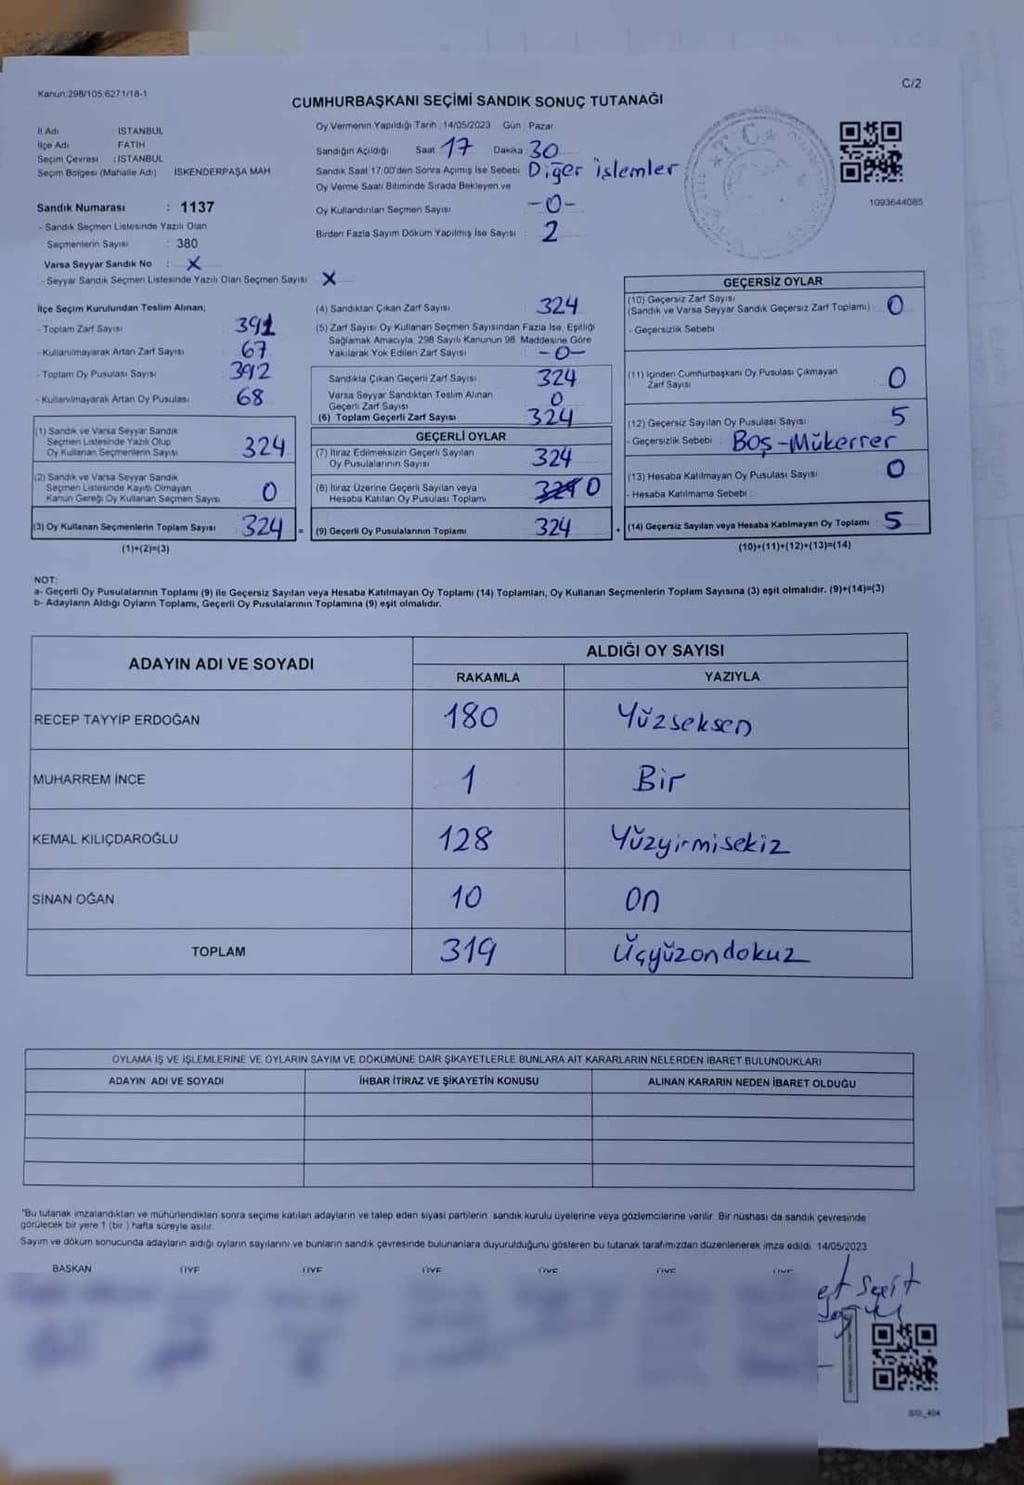 Kanun:298/105;6271/18-1
C/2
CUMHURBAŞKANI SEÇİMİ SANDIK SONUÇ TUTANAĞI
İl Adı İSTANBUL
İlçe Adı FATİH
Seçim Çevresi : İSTANBUL
Seçim Bölgesi (Mahalle Adı) İSKENDERPAŞA MAH
Sandık Numarası : 1137
- Sandık Seçmen Listesinde Yazılı Olan
Seçmenlerin Sayısı : 380
Varsa Seyyar Sandık No : X
- Seyyar Sandık Seçmen Listesinde Yazılı Olan Seçmen Sayısı X
Oy Vermenin Yapıldığı Tarih : 14/05/2023 Gün : Pazar
Sandığın Açıldığı Saat 17 Dakika 30
Sandık Saat 17:00'den Sonra Açımış İse Sebebi Diğer işlemler
Oy Verme Saati Bitiminde Sırada Bekleyen ve
Oy Kullandırılan Seçmen Sayısı -0-
Birden Fazla Sayım Döküm Yapılmış İse Sayısı 2
T.C.
1093644085
İlçe Seçim Kurulundan Teslim Alınan;
- Toplam Zarf Sayısı 391
- Kullanılmayarak Artan Zarf Sayısı 67
- Toplam Oy Pusulası Sayısı 392
- Kullanılmayarak Artan Oy Pusulası 68
(1) Sandık ve Varsa Seyyar Sandık
Seçmen Listesinde Yazılı Olup
Oy Kullanan Seçmenlerin Sayısı 324
(2) Sandık ve Varsa Seyyar Sandık
Seçmen Listesinde Kayıtlı Olmayan
Kanun Gereği Oy Kullanan Seçmen Sayısı 0
(3) Oy Kullanan Seçmenlerin Toplam Sayısı 324
(1)+(2)=(3)
(4) Sandıktan Çıkan Zarf Sayısı 324
(5) Zarf Sayısı Oy Kullanan Seçmen Sayısından Fazla İse, Eşitliği
Sağlamak Amacıyla; 298 Sayılı Kanunun 98. Maddesine Göre
Yakılarak Yok Edilen Zarf Sayısı -0-
Sandıkta Çıkan Geçerli Zarf Sayısı 324
Varsa Seyyar Sandıktan Teslim Alınan
Geçerli Zarf Sayısı 0
(6) Toplam Geçerli Zarf Sayısı 324
GEÇERLİ OYLAR
(7) İtiraz Edilmeksizin Geçerli Sayılan
Oy Pusulalarının Sayısı 324
(8) İtiraz Üzerine Geçerli Sayılan veya
Hesaba Katılan Oy Pusulası Toplamı 0
= (9) Geçerli Oy Pusulalarının Toplamı 324
GEÇERSİZ OYLAR
(10) Geçersiz Zarf Sayısı
(Sandık ve Varsa Seyyar Sandık Geçersiz Zarf Toplamı) 0
- Geçersizlik Sebebi :
(11) İçinden Cumhurbaşkanı Oy Pusulası Çıkmayan
Zarf Sayısı 0
(12) Geçersiz Sayılan Oy Pusulası Sayısı 5
- Geçersizlik Sebebi : Boş-Mükerrer
(13) Hesaba Katılmayan Oy Pusulası Sayısı 0
- Hesaba Katılmama Sebebi :
+ (14) Geçersiz Sayılan veya Hesaba Katılmayan Oy Toplamı 5
(10)+(11)+(12)+(13)=(14)
NOT:
a- Geçerli Oy Pusulalarının Toplamı (9) ile Geçersiz Sayılan veya Hesaba Katılmayan Oy Toplamı (14) Toplamları, Oy Kullanan Seçmenlerin Toplam Sayısına (3) eşit olmalıdır. (9)+(14)=(3)
b- Adayların Aldığı Oyların Toplamı, Geçerli Oy Pusulalarının Toplamına (9) eşit olmalıdır.
ADAYIN ADI VE SOYADI ALDIĞI OY SAYISI
RAKAMLA YAZIYLA
RECEP TAYYİP ERDOĞAN 180 Yüzseksen
MUHARREM İNCE 1 Bir
KEMAL KILIÇDAROĞLU 128 Yüzyirmisekiz
SİNAN OĞAN 10 on
TOPLAM 319 Üçyüzondokuz
OYLAMA İŞ VE İŞLEMLERİNE VE OYLARIN SAYIM VE DÖKÜMÜNE DAİR ŞİKAYETLERLE BUNLARA AİT KARARLARIN NELERDEN İBARET BULUNDUKLARI
ADAYIN ADI VE SOYADI İHBAR İTİRAZ VE ŞİKAYETİN KONUSU ALINAN KARARIN NEDEN İBARET OLDUĞU
"Bu tutanak imzalandıktan ve mühürlendikten sonra seçime katılan adayların ve talep eden siyasi partilerin sandık kurulu üyelerine veya gözlemcilerine verilir. Bir nüshası da sandık çevresinde
görülecek bir yere 1 (bir ) hafta süreyle asılır.
Sayım ve döküm sonucunda adayların aldığı oyların sayılarını ve bunların sandık çevresinde bulunanlara duyurulduğunu gösteren bu tutanak tarafımızdan düzenlenerek imza edildi. 14/05/2023
BAŞKAN ÜYE ÜYE ÜYE ÜYE ÜYE ÜYE